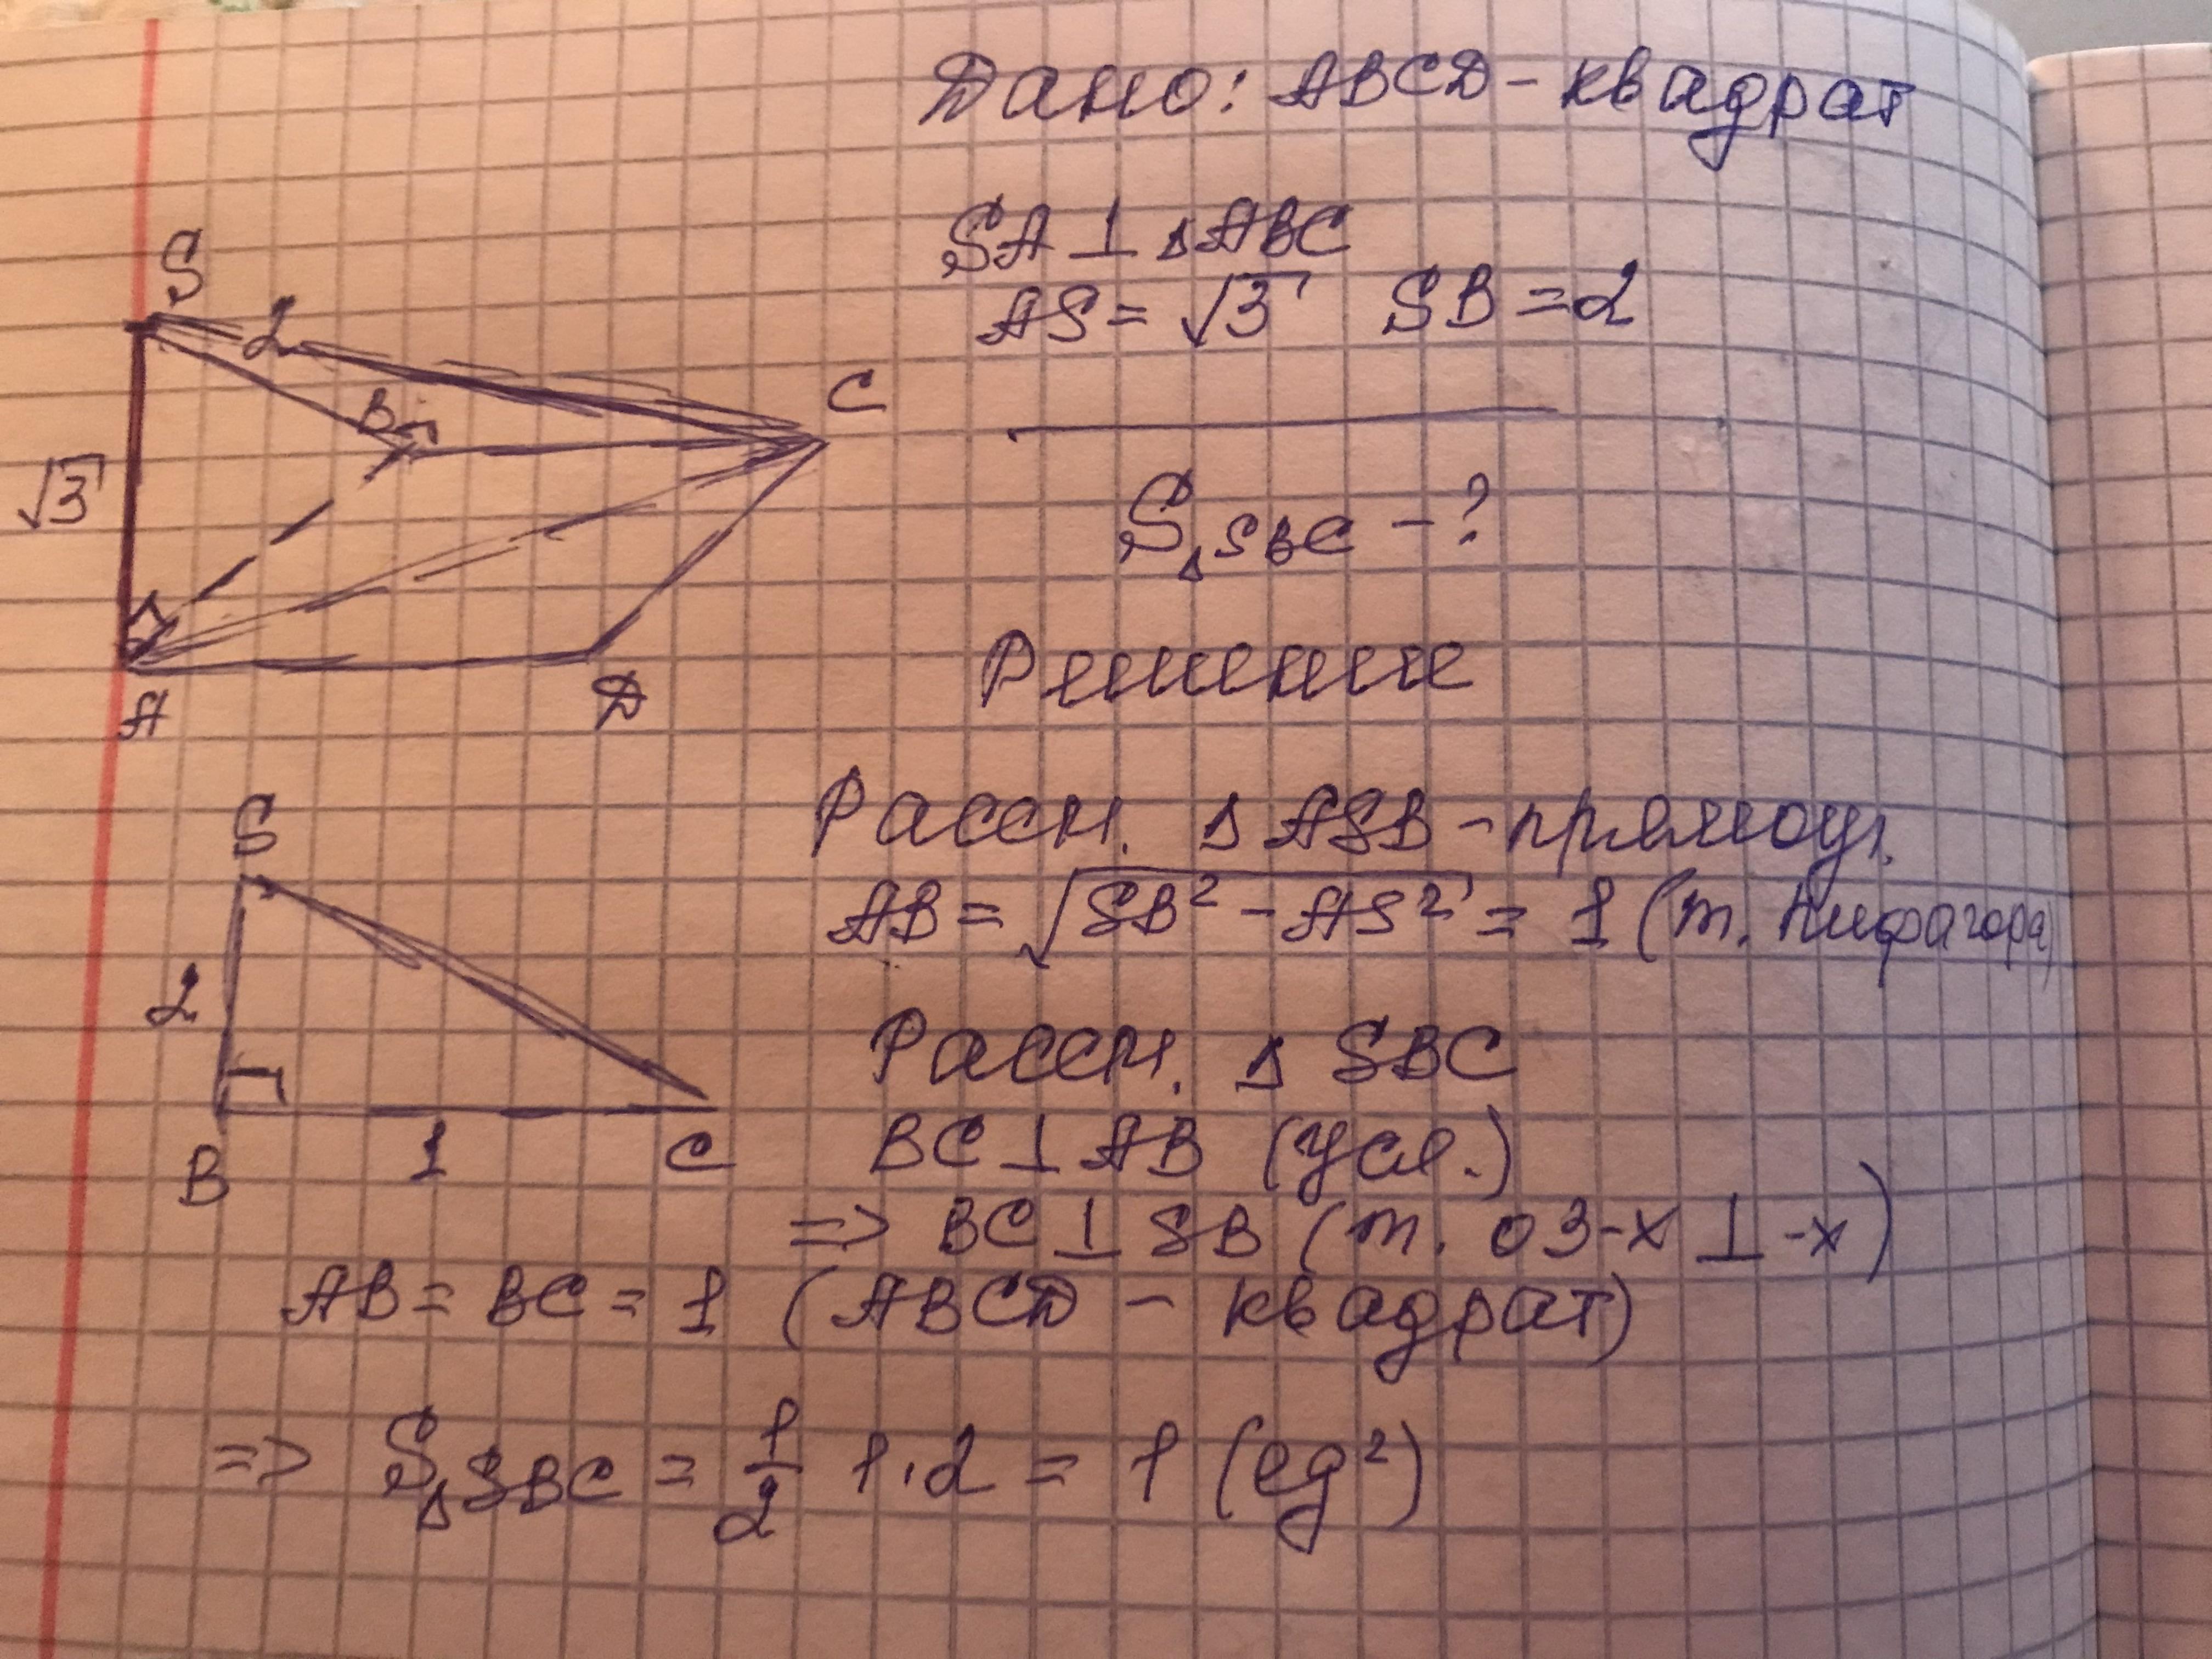 Дано: ABCD - квадрат
SA ⊥ △ABC
AS = √3 SB = 2
S△SBC - ?
Решение
S
2
B
C
√3
A
D
Рассм. △ ASB - прямоуг.
AB = √SB² - AS² = 1 (т. Пифагора)
Рассм. △ SBC
BC ⊥ AB (усл.)
=> BC ⊥ SB (т. о 3-х ⊥-х)
S
2
B
1
C
AB = BC = 1 (ABCD - квадрат)
=> S△SBC = 1/2 1·2 = 1 (ед²)